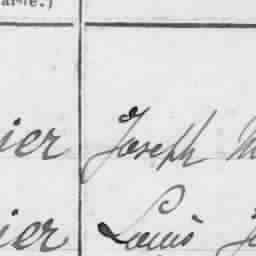 ier Joseph
ier Louis